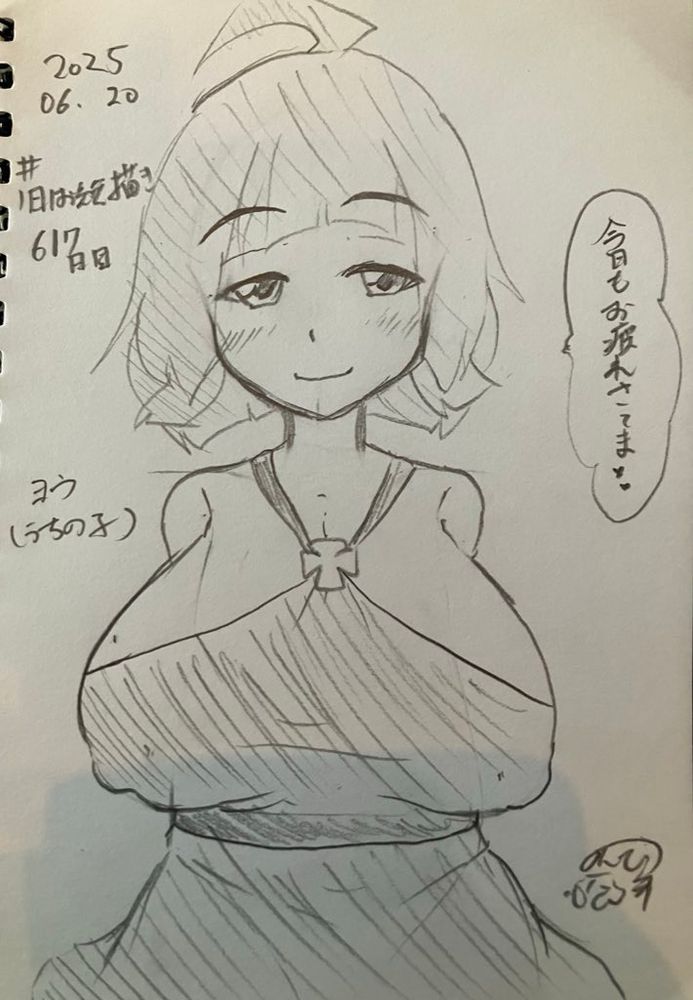 2025
06.20
#
1日1お絵描き
617日目
今日もお疲れさてま♥♥
ヨウ
(うちの子)